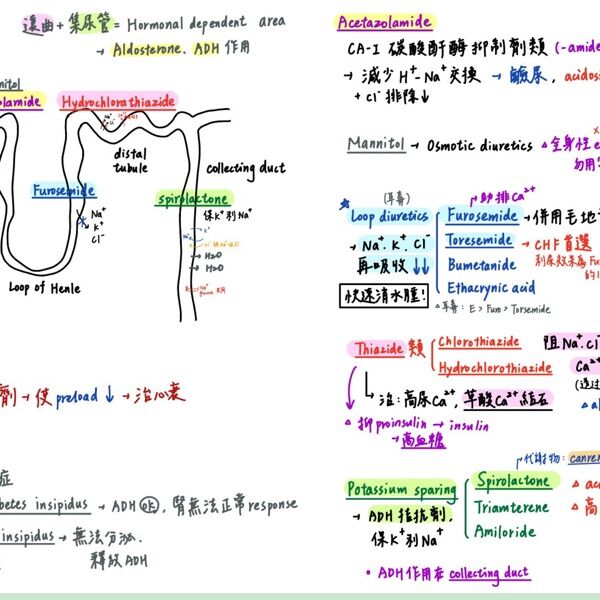 遠曲 + 集尿管 = Hormonal dependent area
→ Aldosterone、ADH 作用
nitol
olamide
Hydrochlorathiazide
distal
tubule
collecting duct
Furosemide
Na⁺
K⁺
Cl⁻
spirolactone
保K⁺利Na⁺
→ H2O
→ H2O
Loop of Henle
劑 → 使preload ↓ → 治心衰
症
betes insipidus → ADH ok, 腎無法正常response
insipidus → 無法分泌、
釋放ADH
Acetazolamide
CA-I 碳酸酐酶抑制劑類 (-amide
→ 減少 H⁺-Na⁺交換 → 鹼尿, acidos
+ Cl⁻排除↓
Mannitol → Osmotic diuretics △全身性e
勿用
(耳毒)
助排Ca²⁺
Loop diuretics
Furosemide → 併用毛地
→ Na⁺. K⁺. Cl⁻
Toresemide → CHF首選
再吸收↓↓
利尿效果為Fu
Bumetanide
快速清水腫!
Ethacrynic acid
△耳毒: E > Furo > Torsemide
Thiazide 類
Chlorothiazide
阻Na⁺.Cl
Hydrochlorothiazide
Ca²⁺
治: 高尿Ca²⁺, 草酸Ca²⁺結石
△ 抑proinsulin → insulin
→ 高血糖
代謝物: canre
Potassium sparing
Spirolactone
△ ac
→ ADH 拮抗劑,
Triamterene
△ 高
保K⁺利Na⁺
Amiloride
• ADH作用在 collecting duct